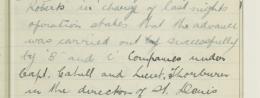 Roberts in charge of last nights
operation states that the advance
was carried out successfully
by 'B' and 'C' Companies under
Capt. Cahill and Lieut. Thorburn
in the direction of St. Denis